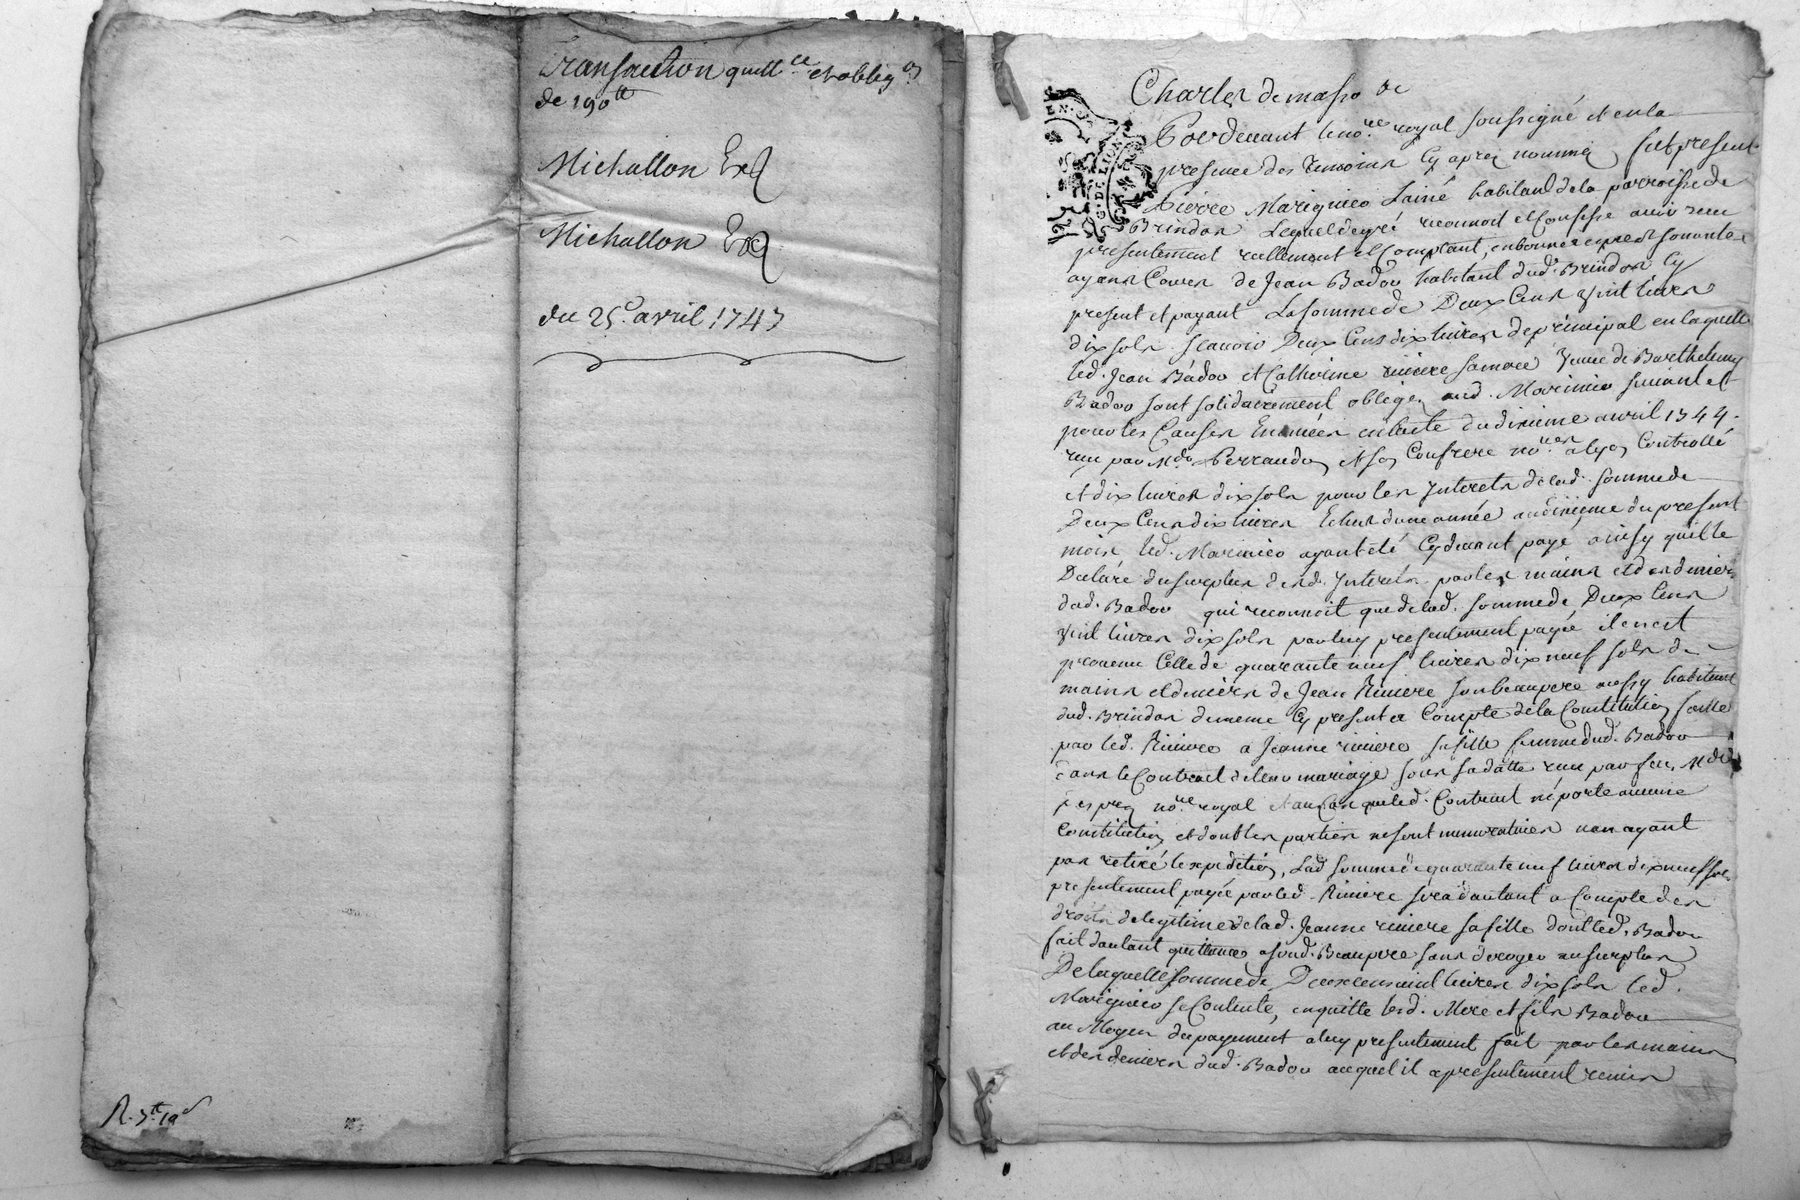 Transaction quitt.ce et oblig.on
de 190 ₶
Michallon
Michallon
du 25.e avril 1747
Charles de masso &c
Pardevant le no.re royal soussigné et en la
presence des temoins cy apres nommés fut present
Pierre Marignieo Lainé habitant de la parroisse de
Brindas Lequel de gré reconnoit et confesse avoir receu
presentement reellement et Comptant, en bonnes especes sonantes
ayans Cours de Jean Badou habitant dud. Brindas cy
present et payant La somme de Deux Cens vint livres
dix sols scavoir Deux Cens dix livres de principal en laquelle
led. Jean Badou et Catherine riviere sa mere veuve de Barthelemy
Badou sont solidairement obligés aud. suivant et
pour les Causes Enoncées en lacte du dixieme avril 1744.
receu par M.e Perraudin et son Confrere no.res a lyon Controllé
et dix livres dix sols pour les Interets de lad. somme de
Deux Cens dix livres Echus dune année au dixieme du present
mois led. ayant eté Cy devant payé ainsy quil le
Declare du surplus desd. Interets par les mains et des deniers
dud. Badou qui reconnoit que de lad. somme de Deux Cens
vint livres dix sols par luy presentement payée il en est
provenu Celle de quarante neuf livres dix neuf sols des
mains et deniers de Jean Riviere son beaupere aussy habitant
dud. Brindas de meme Cy present a Compte de la Constitution faitte
par led. Riviere a Jeanne riviere sa fille femme dud. Badou
dans le Contract de leur mariage sous sa datte receu par feu M.e
no.re royal et au Cas que led. Contract ne porte aucune
Constitution et dont les parties ne sont memoratives nen ayant
pas retiré lexpedition, Lad. somme de quarante neuf livres dix neuf sols
presentement payée par led. Riviere sera dautant a Compte des
droits de legitime de lad. Jeanne riviere sa fille dont led. Badou
fait dautant quittance a sond. Beaupere sans deroger au surplus
De laquelle somme de Deux cens vint livres dix sols led.
Marignieo se Contente, en quitte lesd. Mere et fils Badou
au Moyen du payement a luy presentement fait par les mains
et des deniers dud. Badou auquel il a presentement remis